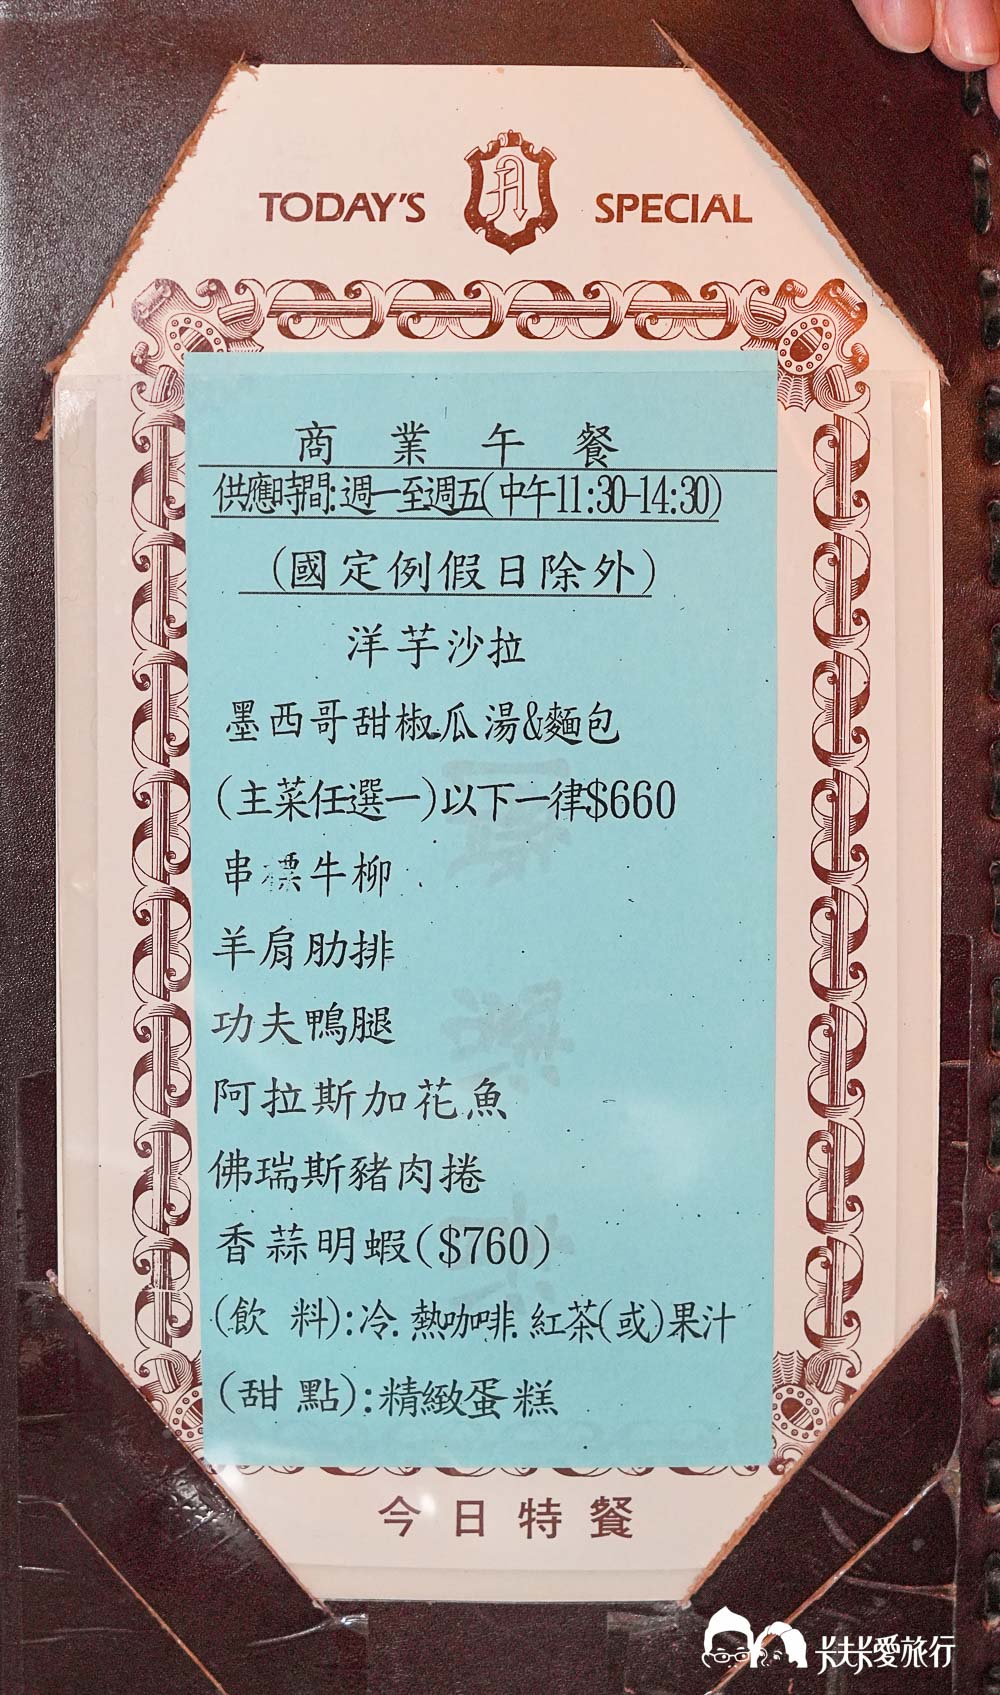 TODAY'S A SPECIAL
商業午餐
供應時間:週一至週五(中午11:30-14:30)
(國定例假日除外)
洋芋沙拉
墨西哥甜椒瓜湯&麵包
(主菜任選一)以下一律$660
串標牛柳
羊肩肋排
功夫鴨腿
阿拉斯加花魚
佛瑞斯豬肉捲
香蒜明蝦($760)
(飲料):冷.熱咖啡.紅茶(或)果汁
(甜點):精緻蛋糕
今日特餐
卡夫卡愛旅行